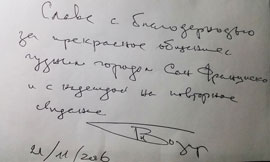 Славе с благодарностью
за прекрасное общение с
чудным городом Сан Франциско
и с надеждой на повторное
свидание
21/11/2006